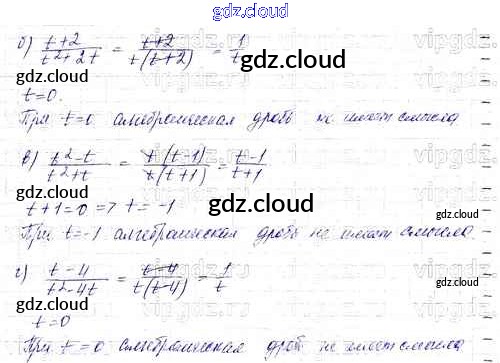 gdz.cloud
б) t+2/t²+2t = t+2/t(t+2) = 1/t
t=0.
При t=0 алгебраическая дробь не имеет смысла
в) t²-t/t²+t = t(t-1)/t(t+1) = t-1/t+1
t+1=0 => t=-1
При t=-1 алгебраическая дробь не имеет смысла.
г) t-4/t²-4t = t-4/t(t-4) = 1/t
t=0
При t=0 алгебраическая дробь не имеет смысла
gdz.cloud
gdz.cloud
gdz.cloud
gdz.cloud
gdz.cloud
gdz.cloud
gdz.cloud
gdz.cloud